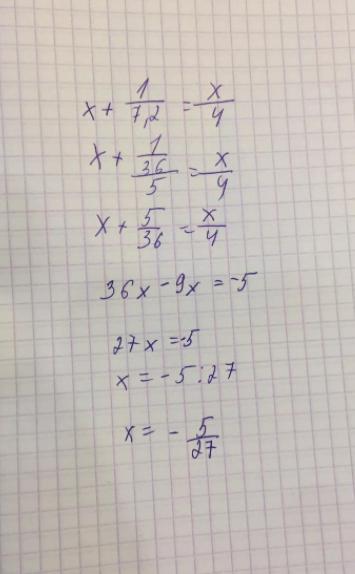 x + 1/7,2 = x/4
x + 1/(36/5) = x/4
x + 5/36 = x/4
36x - 9x = -5
27x = -5
x = -5 : 27
x = - 5/27